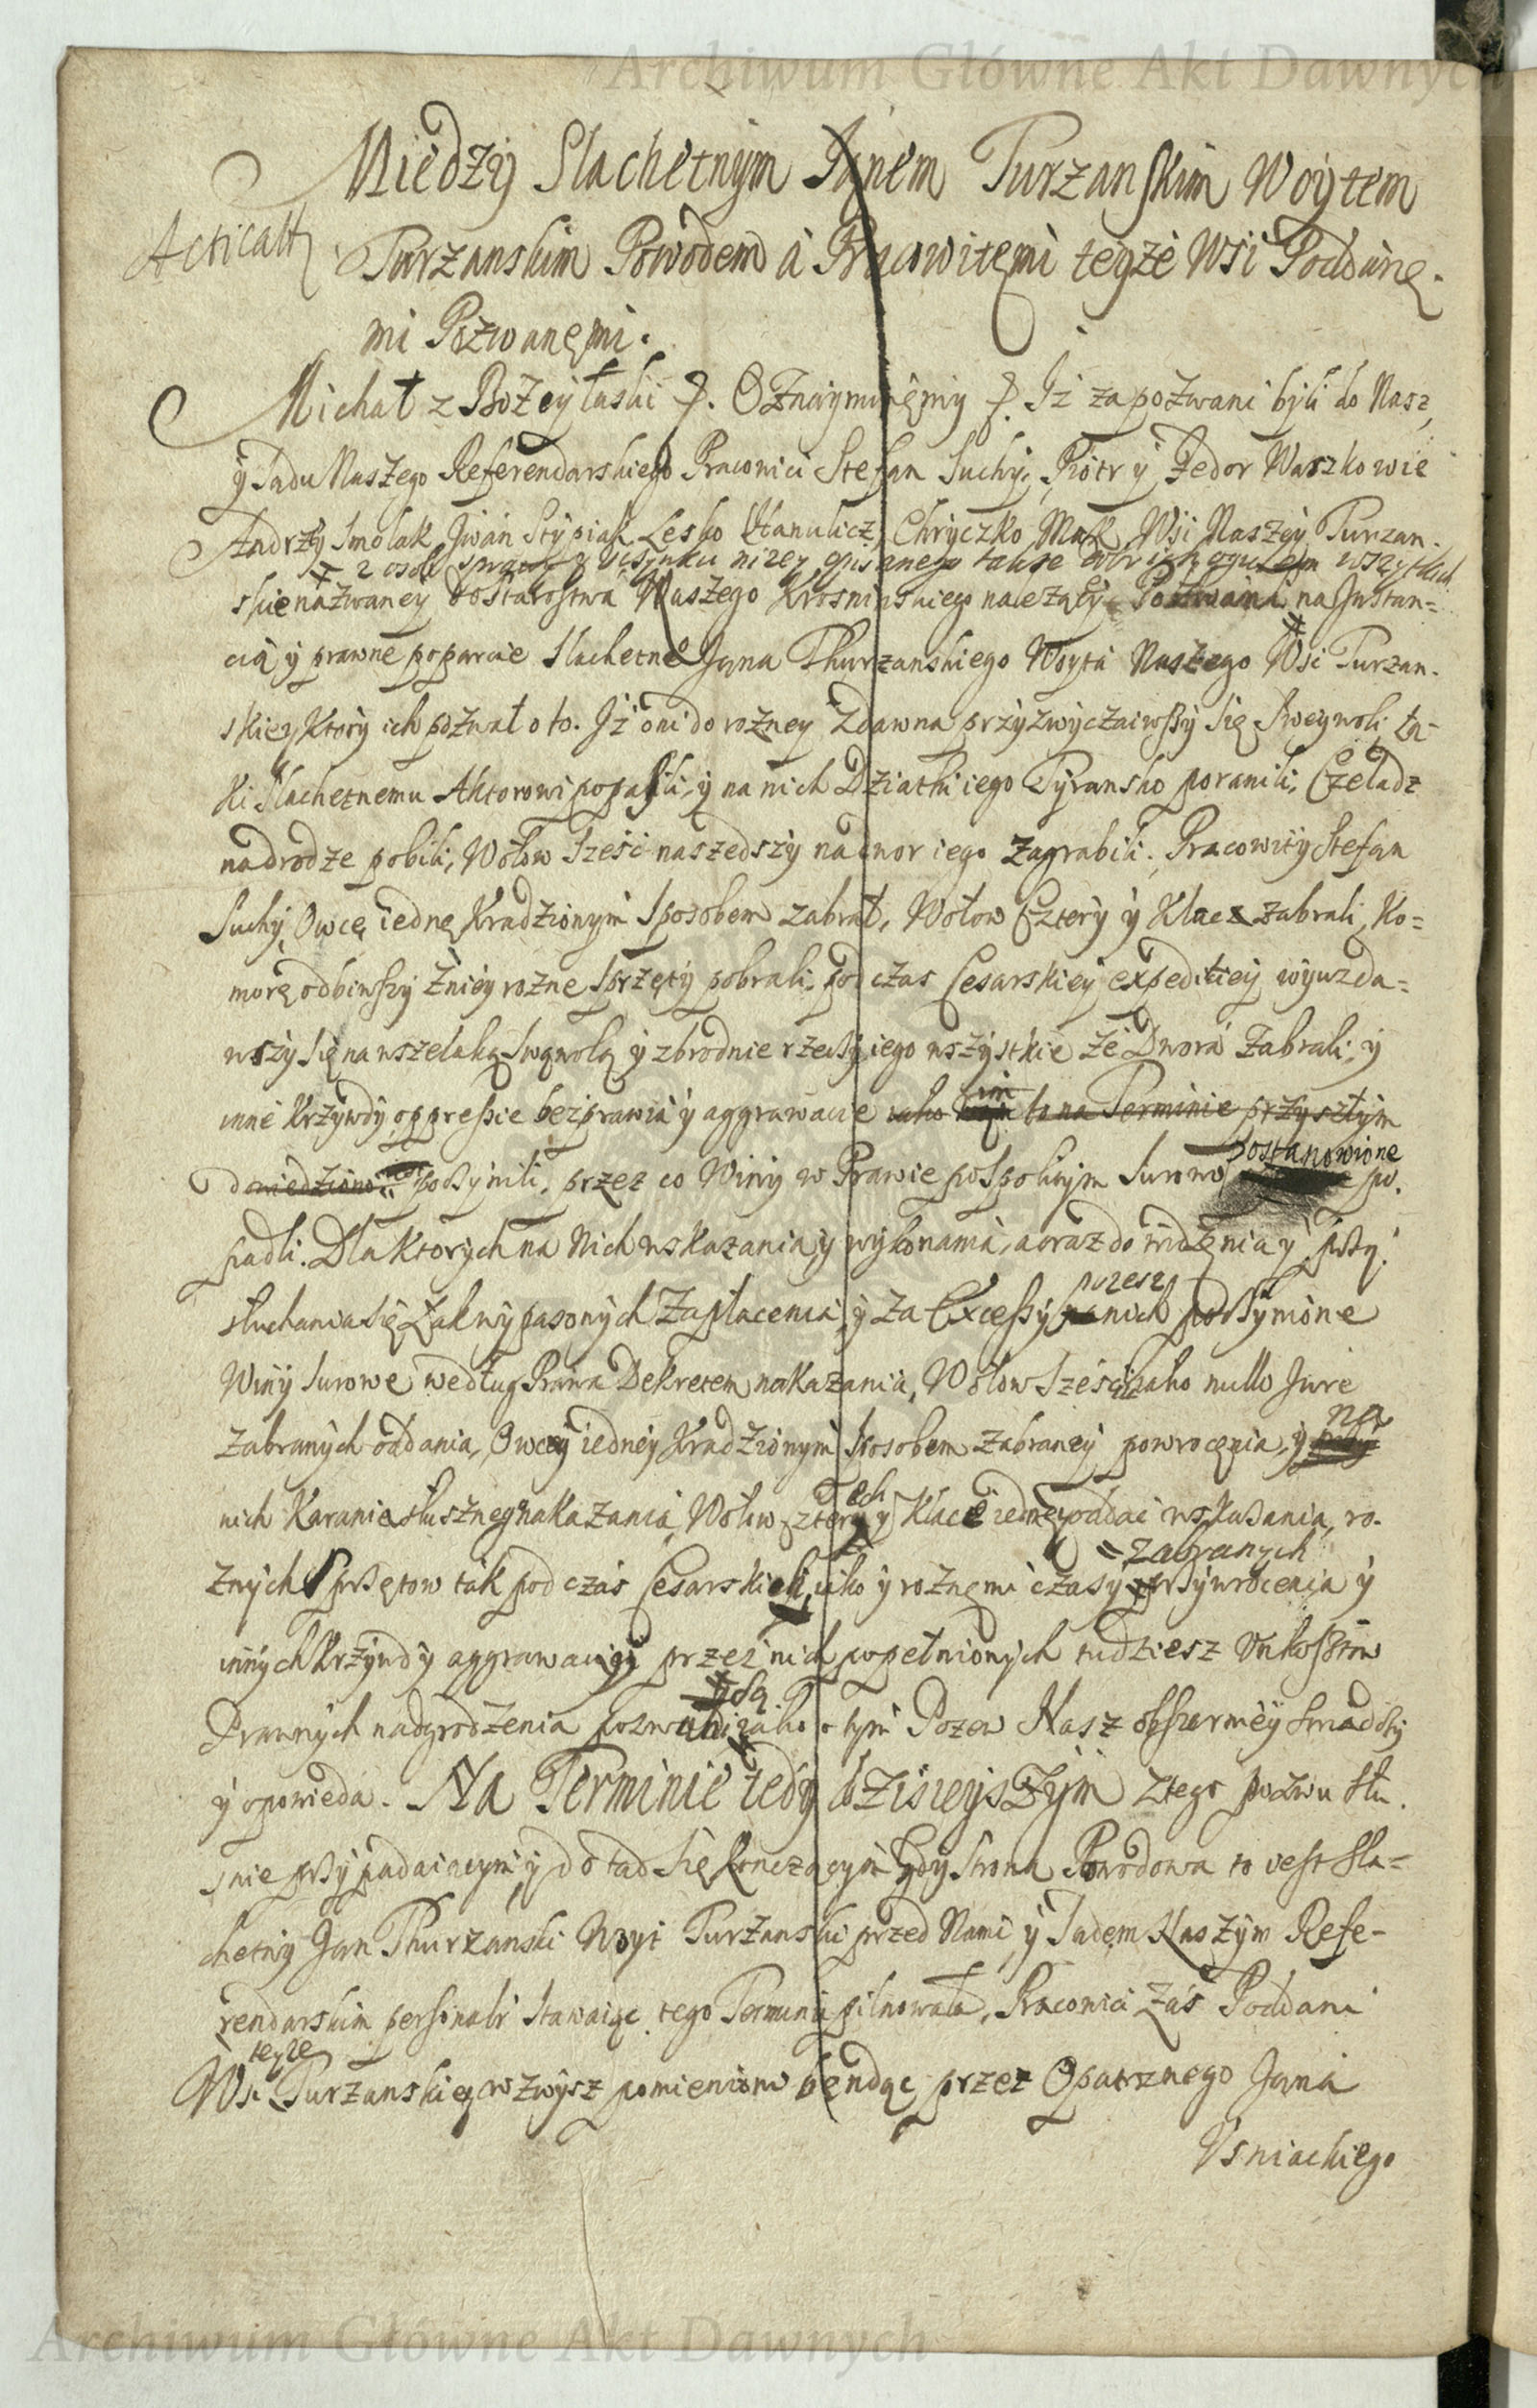 Archiwum Główne Akt Dawnych
Miedzy Slachetnym Janem Turzanskim Woytem
Acticatt
Turzanskim Powodem à Pracowitemi teyże Wsi Poddanę-
mi Pozwanęmi.
Michał z Bożey łaski &. Oznaymuięmy &. Iż zapozwani byli do Nasz,
y Sadu Naszego Referendarskiego Pracowici Stefan Suchy, Piotr y Fedor Waszkowie
Andrzy Smolak Iwan Stypiak Lesko Chryczko Wsi Naszey Turzan-
z osob sprawy y uczynku niżey opisanego także dobr ich ogułem wszytkich
skie nazwaney do Starostwa Naszego Krosninskiego należący na Instan=
cią y prawne poparcie Slachetne Jana Thurzanskiego Woyta Naszego Wsi Turzan-
skiey, Ktory ich pozwał o to. Iż oni do rozney zdawna przyzwyczaiwszy się Sweywoli łą-
ki Slachetnemu Aktorowi popaśli, y na nich Dziatki iego Tyransko poranili, Czeladz
na drodze pobili, Wołow Sześć naszedszy na dwor iego zagrabili. Pracowity Stefan
Suchy Owcę iednę Kradzionym Sposobem zabrał, Wołow Cztery y Klacz zabrali, Ko=
morę odbiwszy z niey rozne sprzęty pobrali, pod czas Cesarskiey expeditiey wyuzda=
wszy się na wszelaką swąwolą y zbrodnie rzeczy iego wszystkie ze Dwora zabrali, y
inne krzywdy oppressie bezprawia y aggrawacie iako im to na Terminie przyszłym
dowiedziono poczynili, przez co Winy w Prawie pospolitym Surowo postanowione po-
padli. Dla ktorych na Nich wskazania, y wykonania, a oraz do widzenia y przy-
słuchania się Łąk wypasonych zapłacenia, y za Excessy przesz nich poczynione
Winy surowe według Prawa Dekretem nakazania, Wołow Sześci iako nullo Jure
zabranych oddania, Owcy iedney Kradzionym sposobem zabraney powrocenia, y na
nich Karania słusznego nakazania, Wołow czterech y Klacze iedney oddać wskazania, ro-
= zabranych
znych sprzętow tak pod czas Cesarskiey iako y roznemi czasy przywrocenia y
innych Krzywd y aggrawacyi przez nich popełnionych tudziesz Unkosztow
Prawnych nadgrodzenia pozwani są iako o tym Pozew Nasz obszerniey swiadczy
y opowieda. Na Terminie tedy dzisieyszym z tego pozwu słu-
snie przypadaiącym y dotad się konczącym Gdy Strona Powodowa to iest Sla=
chetny Jan Thurzanski Woyt Turzanski przed Nami y Sadem Naszym Refe-
rendarskim personalr stawaiąc tego Terminu pilnowała, Pracowici zaś Poddani
teyze
Wsi Turzanskiey wzwysz pomienioni bendąc przez Opatrznego Jana
Usniackiego
Archiwum Główne Akt Dawnych